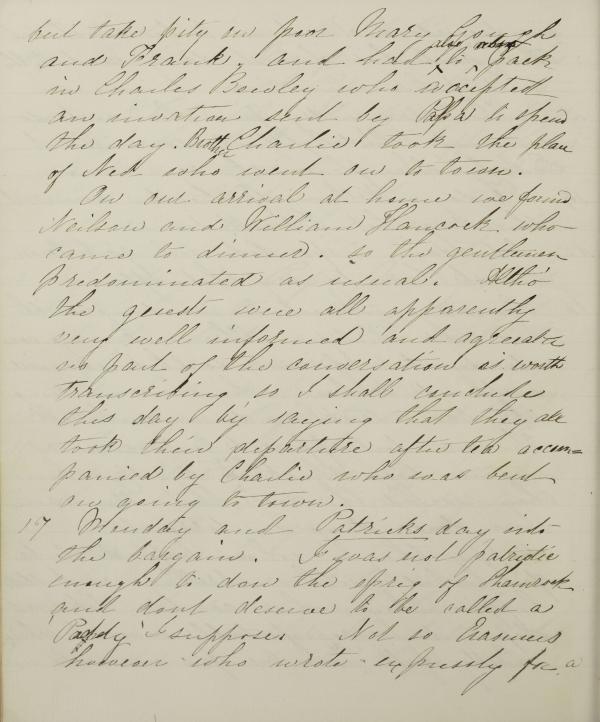 but take pity on poor Mary Gough
and Frank, and had also room to pack
in Charles Bewley who accepted
an invation sent by Papa to spend
the day. Brother Charlie took the place
of Ned who went on to town.
On our arrival at home we found
Neilson and William Hancock who
came to dinner. so the gentlemen
predominated as usual. Altho'
the guests were all apparently
very well informed and agreeable
no part of the conversation is worth
transcribing so I shall conclude
this day by saying that they all
took their departure after tea accom=
panied by Charlie who was bent
on going to town.
17 Monday and Patricks day into
the bargain. I was not patriotic
enough to don the sprig of Shamrock
and dont deserve to be called a
'Paddy' I suppose. Not so Erasmus
however who wrote expressly for a